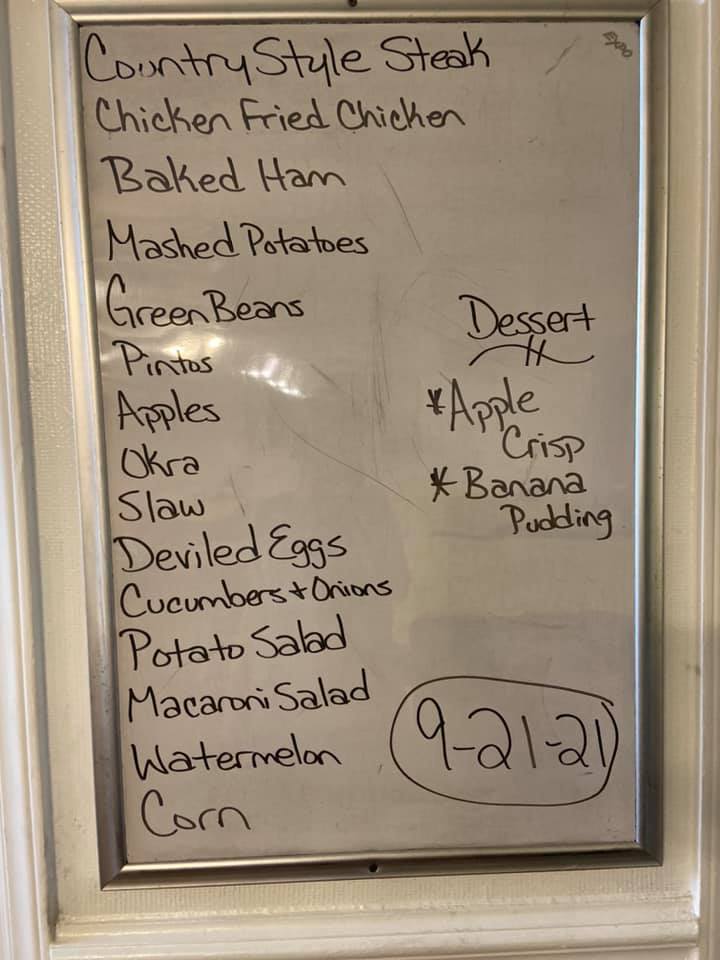 Country Style Steak
Chicken Fried Chicken
Baked Ham
Mashed Potatoes
Green Beans
Pintos
Apples
Okra
Slaw
Deviled Eggs
Cucumbers + Onions
Potato Salad
Macaroni Salad
Watermelon
Corn
Dessert
*Apple
Crisp
*Banana
Pudding
9-21-21